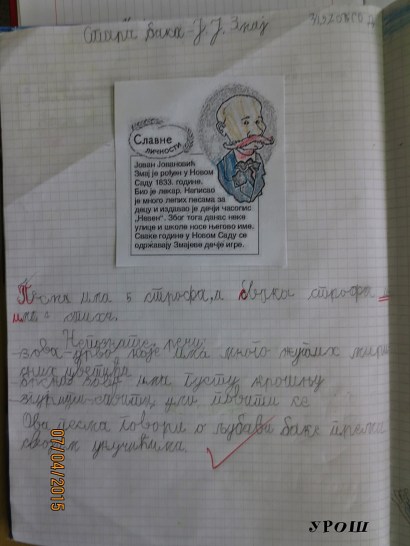 Ј. Ј. Змај
Славне
личности
Јован Јовановић
Змај је рођен у Новом
Саду 1833. године.
Био је лекар. Написао
је много лепих песама за
децу и издавао је дечји часопис
„Невен". Због тога данас неке
улице и школе носе његово име.
Сваке године у Новом Саду се
одржавају Змајеве дечје игре.
Песма има 5 строфа, а свака строфа
има стиха.
Непознате речи:
зова-дрво које има много жутих мири
сних цветова
густу крошњу
Ова песма говори о љубави баке према
својим унучићима.
07/04/2015
УРОШ